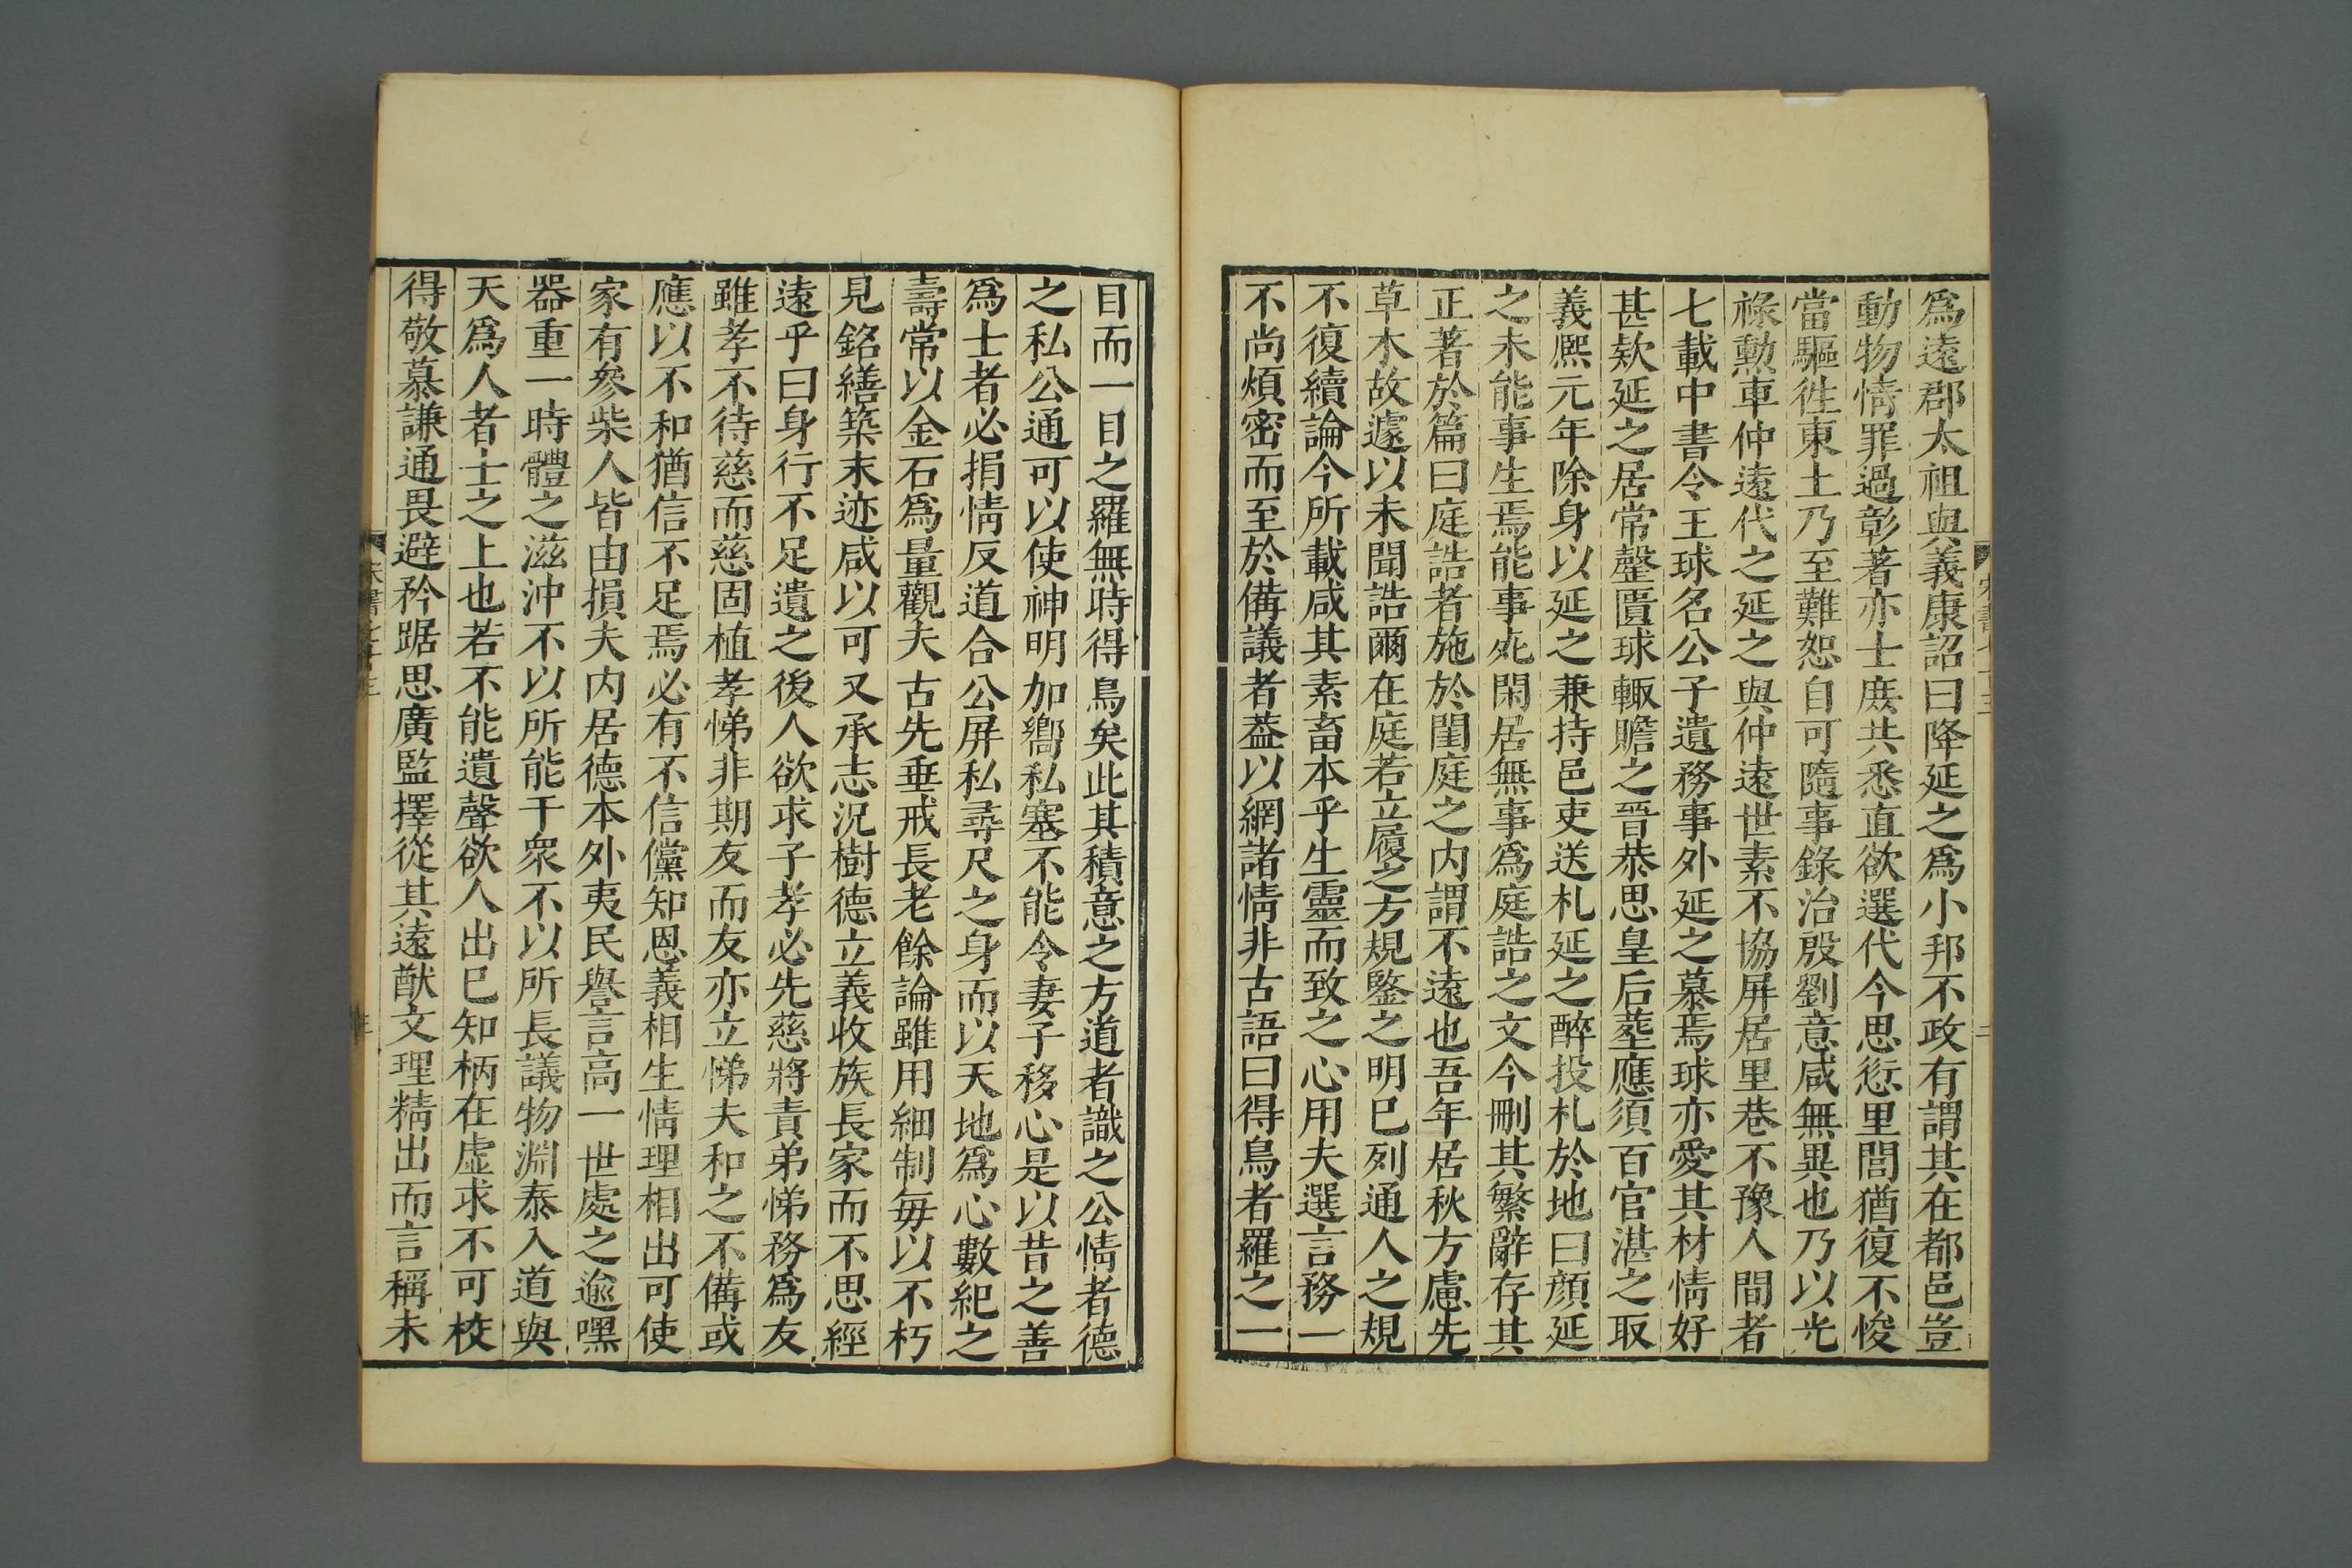 爲遠郡太祖與義康詔曰降延之爲小邦不政有謂其在都邑豈
動物情罪過彰著亦士庶共悉直欲選代令思愆里閭猶復不悛
當驅徃東土乃至難恕自可隨事錄治殷劉意咸無異也乃以光
祿勲車仲遠代之延之與仲遠世素不協屏居里巷不豫人間者
七載中書令王球名公子遺務事外延之慕焉球亦愛其材情好
甚欵延之居常罄匱球輙贍之晉恭思皇后葬應須百官湛之取
義熙元年除身以延之兼持邑吏送札延之醉投札於地曰顔延
之未能事生焉能事死閑居無事爲庭誥之文今刪其繁辭存其
正著於篇曰庭誥者施於閨庭之内謂不遠也吾年居秋方慮先
草木故遽以未聞誥爾在庭若立履之方規鑒之明已列通人之規
不復續論今所載咸其素畜本乎生靈而致之心用夫選言務一
不尚煩密而至於備議者葢以網諸情非古語曰得鳥者羅之一
目而一目之羅無時得鳥矣此其積意之方道者識之公情者德
之私公通可以使神明加嚮私塞不能令妻子移心是以昔之善
爲士者必捐情反道合公屏私尋尺之身而以天地爲心數紀之
壽常以金石爲量觀夫古先垂戒長老餘論雖用細制每以不朽
見銘繕築末迹咸以可又承志況樹德立義收族長家而不思經
遠乎曰身行不足遺之後人欲求子孝必先慈將責弟悌務爲友
雖孝不待慈而慈固植孝悌非期友而友亦立悌夫和之不備或
應以不和猶信不足焉必有不信儻知恩義相生情理相出可使
家有參柴人皆由損夫内居德本外夷民譽言高一世處之逾嘿
器重一時體之滋沖不以所能干衆不以所長議物淵泰入道與
天爲人者士之上也若不能遺聲欲人出巳知柄在虚求不可校
得敬慕謙通畏避矜踞思廣監擇從其遠猷文理精出而言稱未